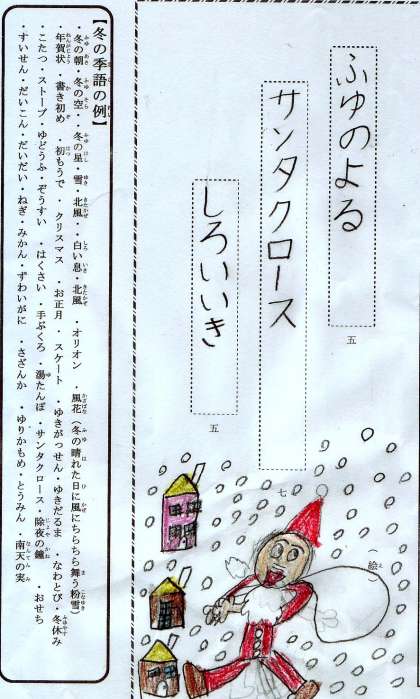 ふゆのよる
五
サンタクロース
七
しろいいき
五
（絵）
【冬の季語の例】
・冬の朝・冬の空・冬の星・雪・北風・白い息・北風・オリオン・風花（冬の晴れた日に風にちらちら舞う粉雪）
・年賀状・書き初め・初もうで・クリスマス・お正月・スケート・ゆきがっせん・ゆきだるま・なわとび・冬休み
・こたつ・ストーブ・ゆどうふ・ぞうすい・はくさい・手ぶくろ・湯たんぽ・サンタクロース・除夜の鐘・おせち
・すいせん・だいこん・だいだい・ねぎ・みかん・ずわいがに・さざんか・ゆりかもめ・とうみん・南天の実